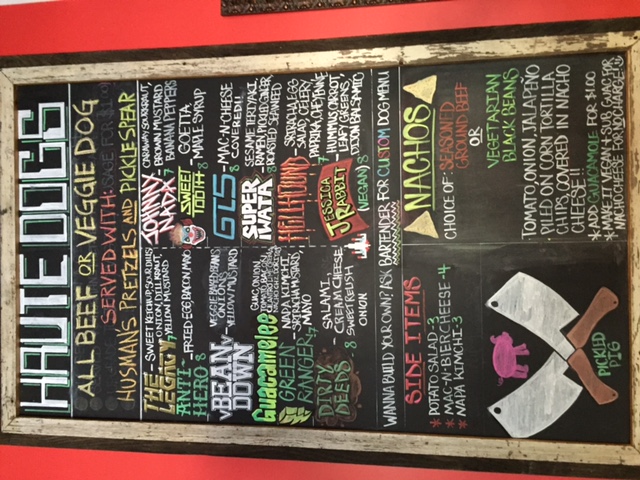 HAUTE DOGS
ALL BEEF OR VEGGIE DOG
SERVED WITH:
HUSMAN'S PRETZELS AND PICKLE SPEAR
THE LEGACY 7
- SWEET RELISH, SOUR DILLS
ONION, SAUERKRAUT,
YELLOW MUSTARD
ANTI HERO 8
- FRIED EGG, BACON, MAYO
BEAN DOWN
VEGGIE BAKED BEANS
ONIONS,
YELLOW MUSTARD
Guacamelee
GUACAMOLE
GREEN RANGER 7
NAPA KIMCHI,
SRIRACHA
MAYO
DIRTY DEEDS 8
SALAMI,
CREAM CHEESE
SWEET RELISH
ONION
JOHNNY NADX 7
CARAWAY SAUERKRAUT,
BROWN MUSTARD
BANANA PEPPERS
SWEET TOOTH 8
- GOETTA
- MAPLE SYRUP
GTS 8
MAC-N-CHEESE
COVERED!!
SUPER IWATA 8
SESAME TERIYAKI,
RAMEN, PICKLED GINGER
ROASTED SEAWEED
HELLHOUND
SRIRACHA EGG
SALAD, CELERY
PAPRIKA, CHEYENNE
JESSICA RABBIT
(VEGAN) 8
HUMMUS, CARROT,
LEAFY GREENS,
DIJON BALSAMIC
WANNA BUILD YOUR OWN?, ASK BARTENDER FOR CUSTOM DOG MENU
SIDE ITEMS
* POTATO SALAD - 3
* MAC-N-BEER CHEESE - 4
* NAPA KIMCHI - 3
PICKLED PIG
NACHOS
CHOICE OF: SEASONED
GROUND BEEF
OR
VEGETARIAN
BLACK BEANS
- TOMATO, ONION, JALAPEÑO
PILED ON CORN TORTILLA
CHIPS, COVERED IN NACHO
CHEESE!!
* ADD GUACAMOLE FOR $1.00
* MAKE IT VEGAN + SUB GUAC FOR
NACHO CHEESE